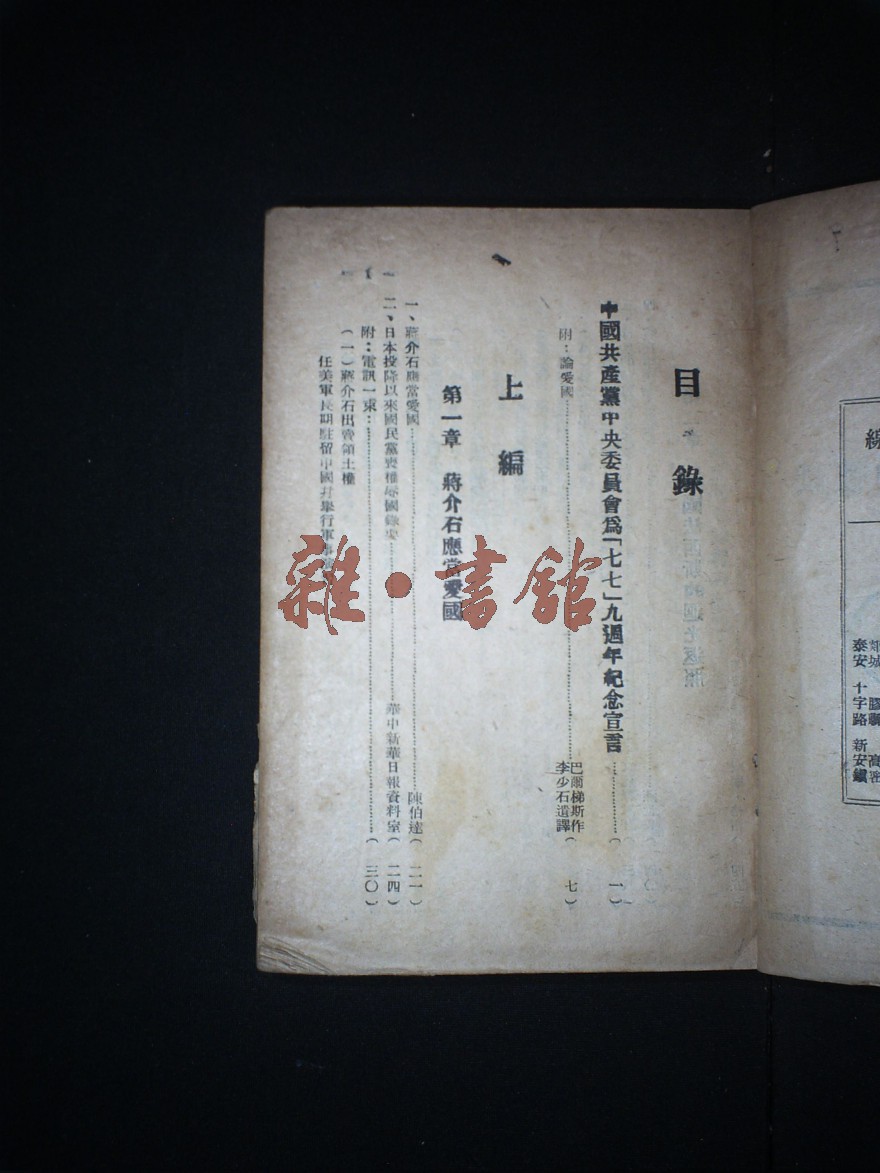 目錄
中國共產黨中央委員會爲「七七」九週年紀念宣言…………(一)
附：論愛國…………巴爾梯斯作 李少石遺譯(七)
上編
第一章 蔣介石應當愛國
一、蔣介石應當愛國…………陳伯達(二一)
二、日本投降以來國民黨喪權辱國錄史…………華中新華日報資料室(二四)
附：電訊一束：…………(三〇)
(一)蔣介石出賣領土權
任美軍長期駐留中國幷舉行軍事
雜·書館
線
郯城 膠縣 高密
泰安 十字路 新安鎮